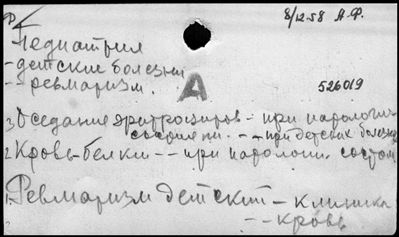 8/12-58 А.Ф.
Педиатрия
- детские болезни
- - ревматизм.
А
526019
3 Оседание эритроцитов - при патологич.
состояни. - - при детских болезнях
2 Кровь-белки - - при патологич. состоян
1. Ревматизм детский - клиника
- - кровь